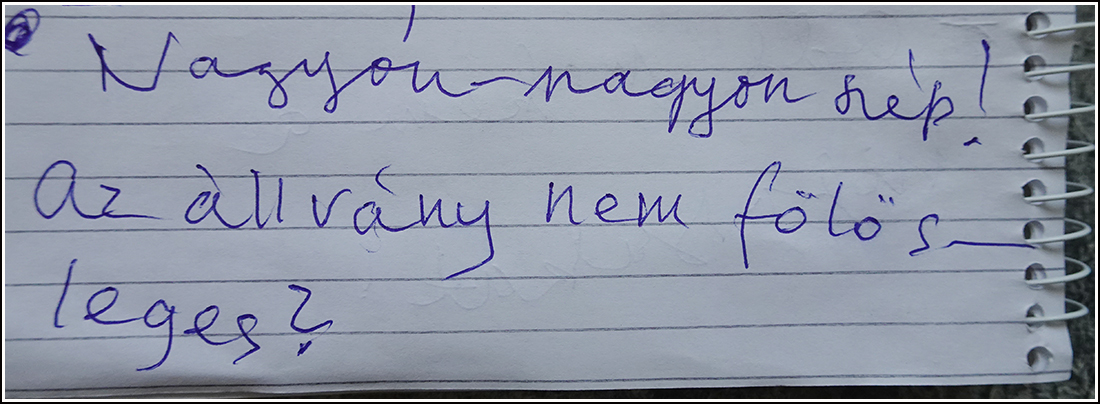 Nagyon-nagyon szép!
Az állvány nem fölös-
leges?